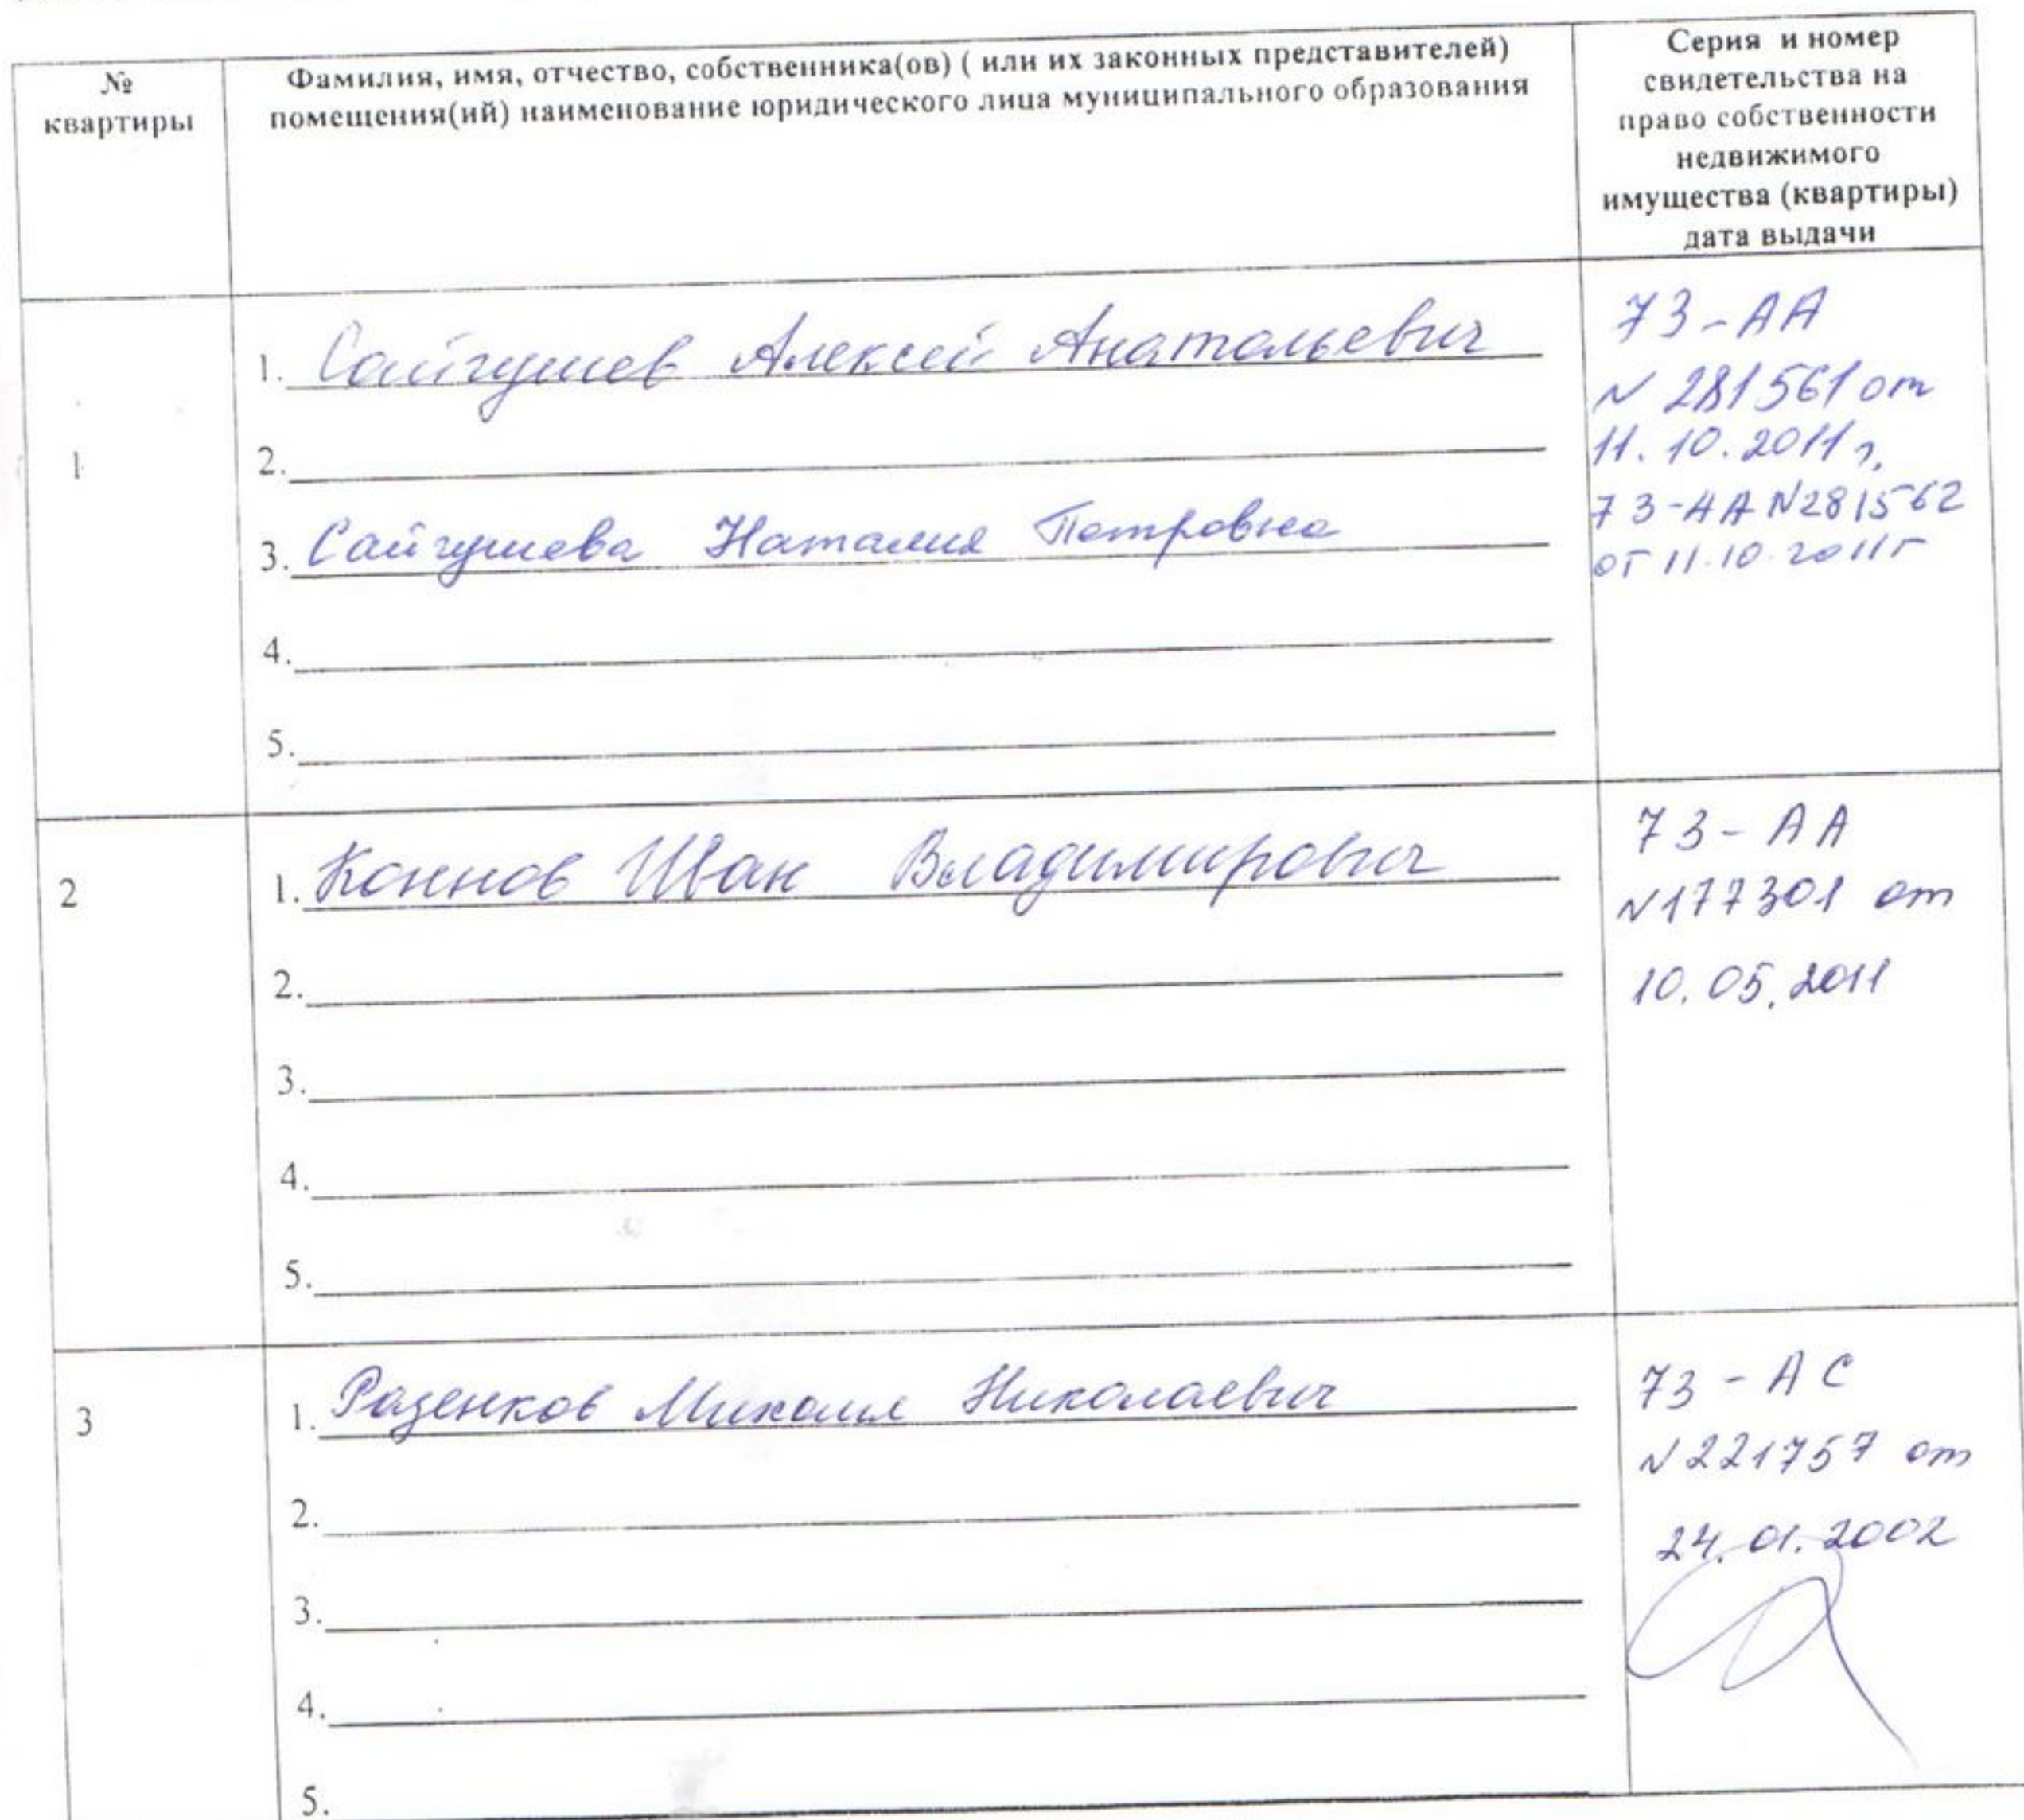 №
квартиры
Фамилия, имя, отчество, собственника(ов) ( или их законных представителей)
помещения(ий) наименование юридического лица муниципального образования
Серия и номер
свидетельства на
право собственности
недвижимого
имущества (квартиры)
дата выдачи
1
1. Сайгушев Алексей Анатольевич
2.
3. Сайгушева Наталия Петровна
4.
5.
73-АА
N 281561 от
11.10.2011 г.
73-АА N281562
от 11.10.2011г
2
1. Коннов Иван Владимирович
2.
3.
4.
5.
73-АА
N177301 от
10.05.2011
3
1. Разенков Михаил Николаевич
2.
3.
4.
5.
73-АС
N221757 от
24.01.2002